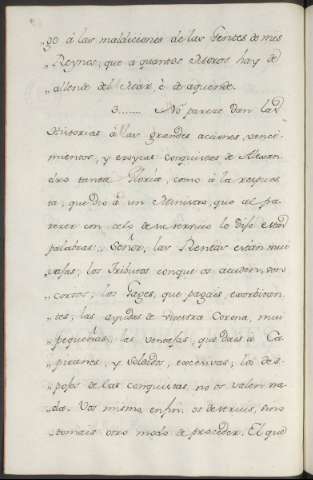 „go à las maldiciones de las Gentes de mis
„Reynos; que a quantos Moros hay de
„allende del Mar, è de aquende.
3....... No parece dan las
Historias à las grandes acciones, venci-
mientos, y eroycas conquistas de Alexan-
dro tanta Gloria, como à la respues-
ta, que dio à un Ministro, que al pa-
recer con celo de su servicio le dijo estas
palabras: Señor, las Rentas están mui
vajas; los Tributos conque os acuden, son
cortos; los Gages, que pagais exorbitan-
tes; las ayudas de vuestra Corona, mui
pequeñas; las ventajas, que dais à Ca-
pitanes, y Soldados, excesivas; los des-
pojos de las conquistas, no os valen na-
da. Vos mismo, en fin, os destruis, sino
tomais otro modo de proceder. El que